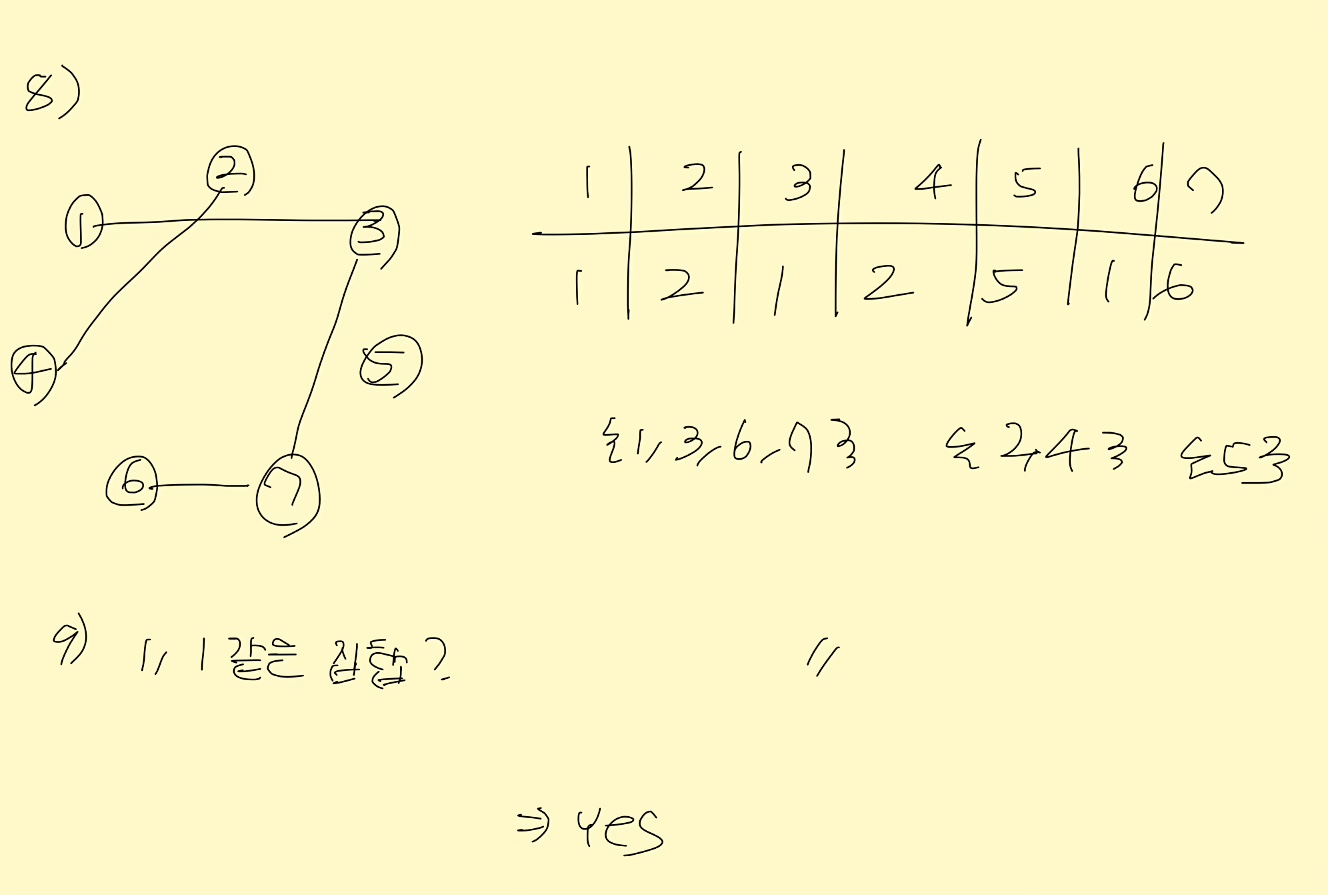 8)
②
①
③
④
⑤
⑥
⑦
1 2 3 4 5 6 7
1 2 1 2 5 1 6
{1, 3, 6, 7} {2, 4} {5}
9) 1, 1 같은 집합? 〃
⇒ yes